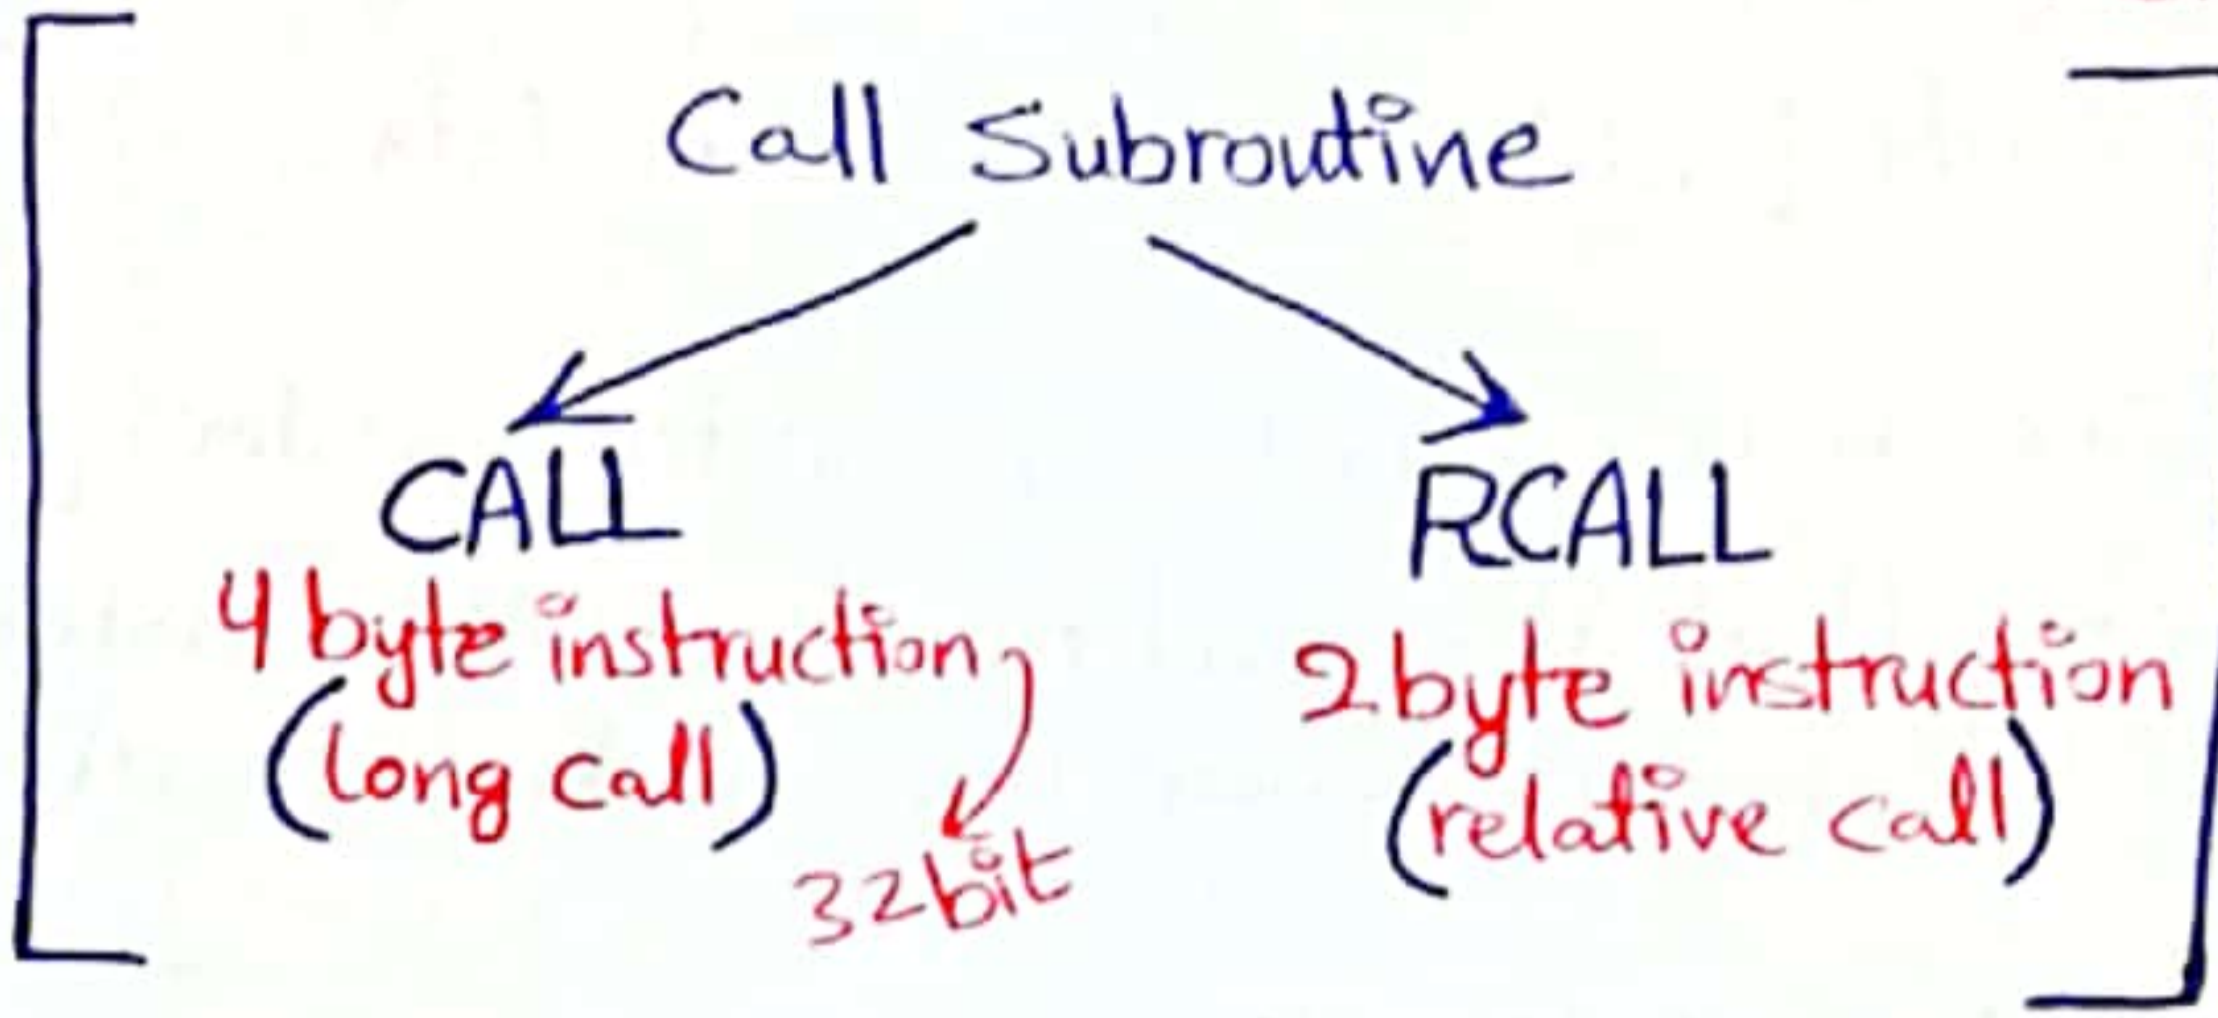 Call Subroutine
CALL
RCALL
4 byte instruction
(long call)
32bit
2 byte instruction
(relative call)